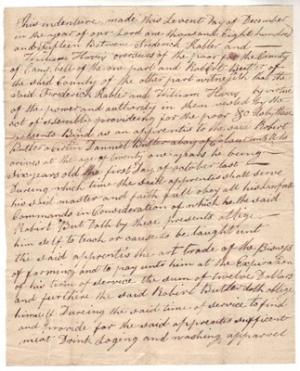 This indenture made this Seventh day of December
in the year of our Lord one thousand Eight hundred
and fifteen Between Frederick Rabler and
William Harris overseers of the poor for the County
of Campbell of the one part and Robert Butler of
the said County of the other part witnesseth that the
said Frederick Rabler and William Harris by virtue
of the power and authority in them vested by the
act of assembly providing for the poor &c do by these
presents Bind as an apprentis to the said Robert
Butler a boy of Colour untill he
arives at the age of twenty one years he being
Six years old the first day of october last
During which time the said apprentis shall serve
his said master and faithfull obey all his lawfull
Commands in Consideration of which he the said
Robert Butler doth by these presents oblige
him self to teach or cause to be taught unto
the said apprentis the art trade of the Bisness
of farming and to pay unto him at the Expiration
of his time of service the sum of twelve Dollars
and further the said Robert Butler doth oblige
himself During the said time of service to find
and provide for the said apprentis sufficent
meat Drink Loging and washing apparrel